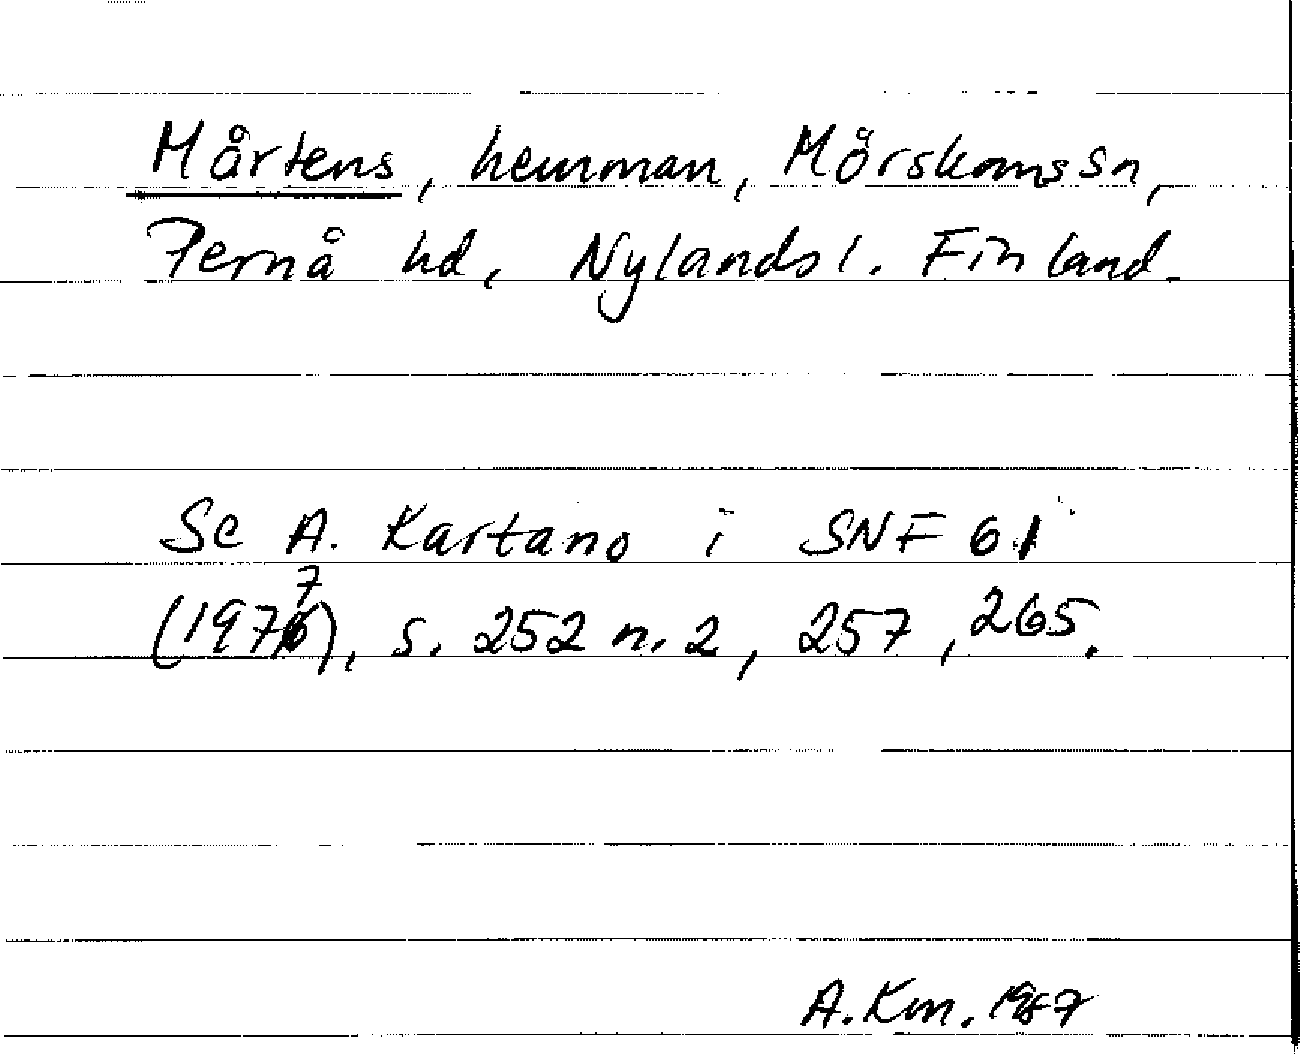 Mårtens, hemman, Mörskoms sn,
Pernå hd, Nylands l. Finland.
Se A. Kartano i SNF 61
(1977), s. 252 n. 2, 257, 265.
A. Km. 1987